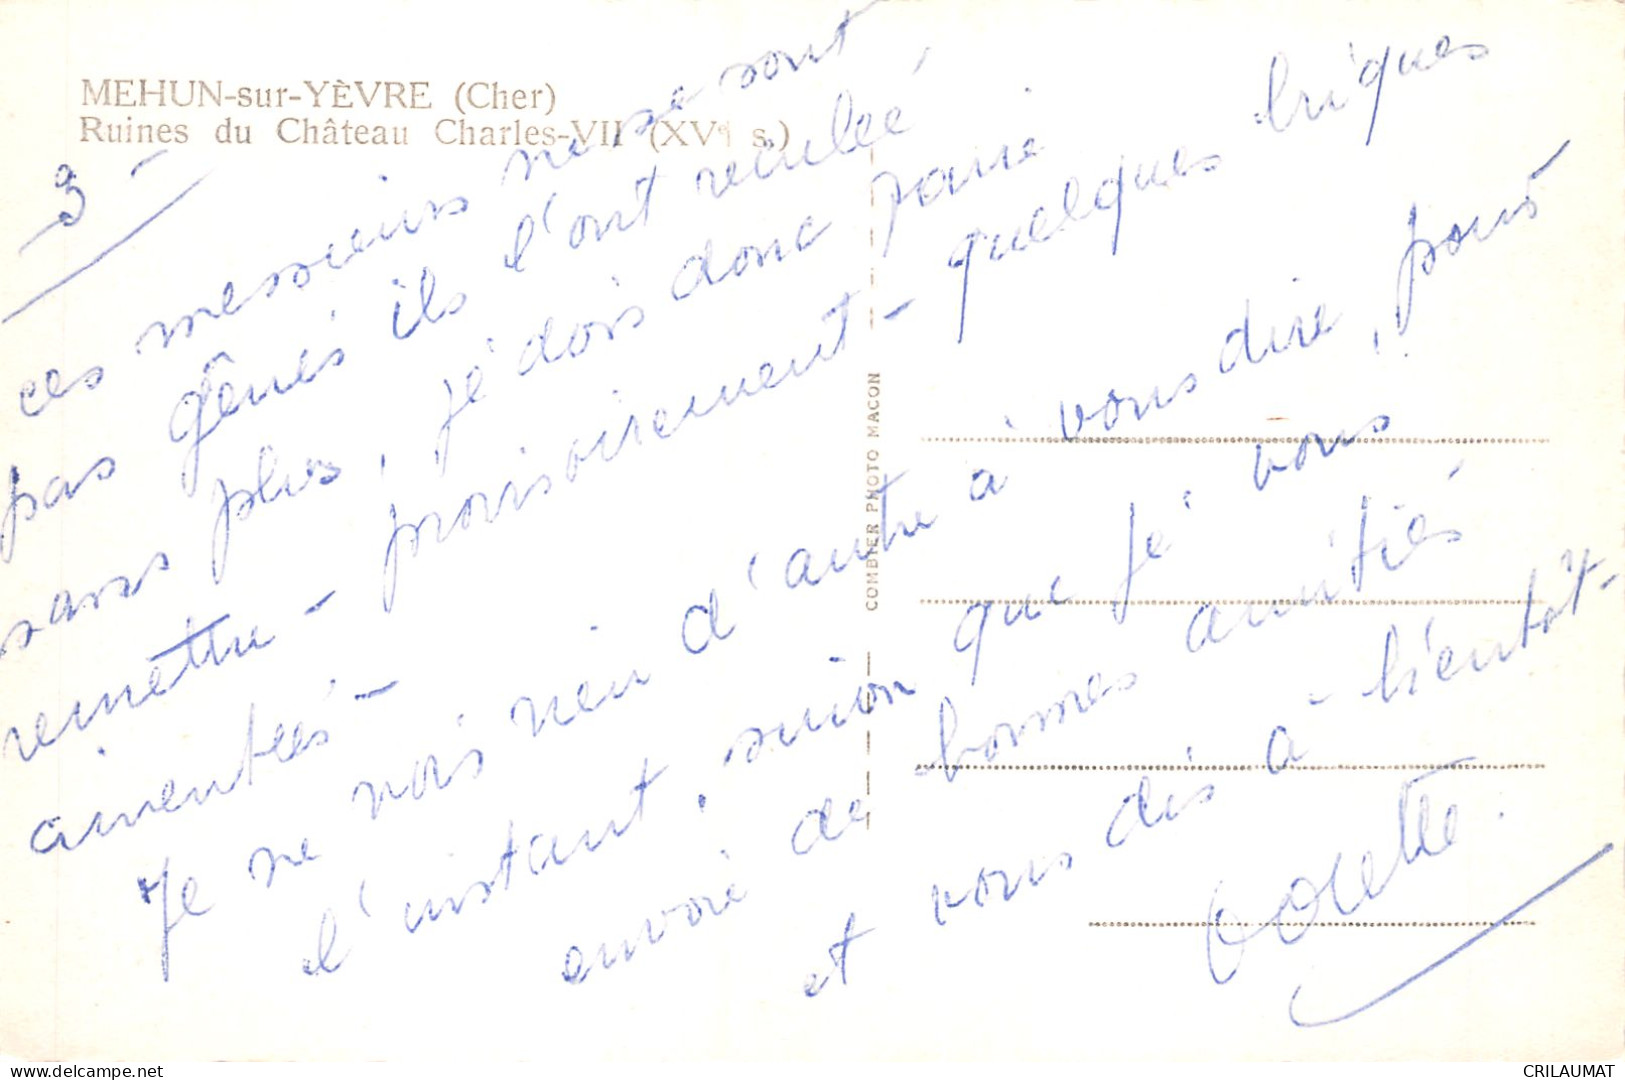 MEHUN-sur-YÈVRE (Cher)
Ruines du Château Charles-VII (XVe s.)
3 -
ces messieurs ne se sont
pas gênés ils l'ont reculée
sans plus, je dois donc faire
remettre - provisoirement - quelques briques
amentées -
Je ne vois rien d'autre à vous dire, pour
l'instant, sinon que je vous
envoie de bonnes amitiés
et vous dis à bientôt -
Colette.
COMBIER PHOTO MACON
CRILAUMAT